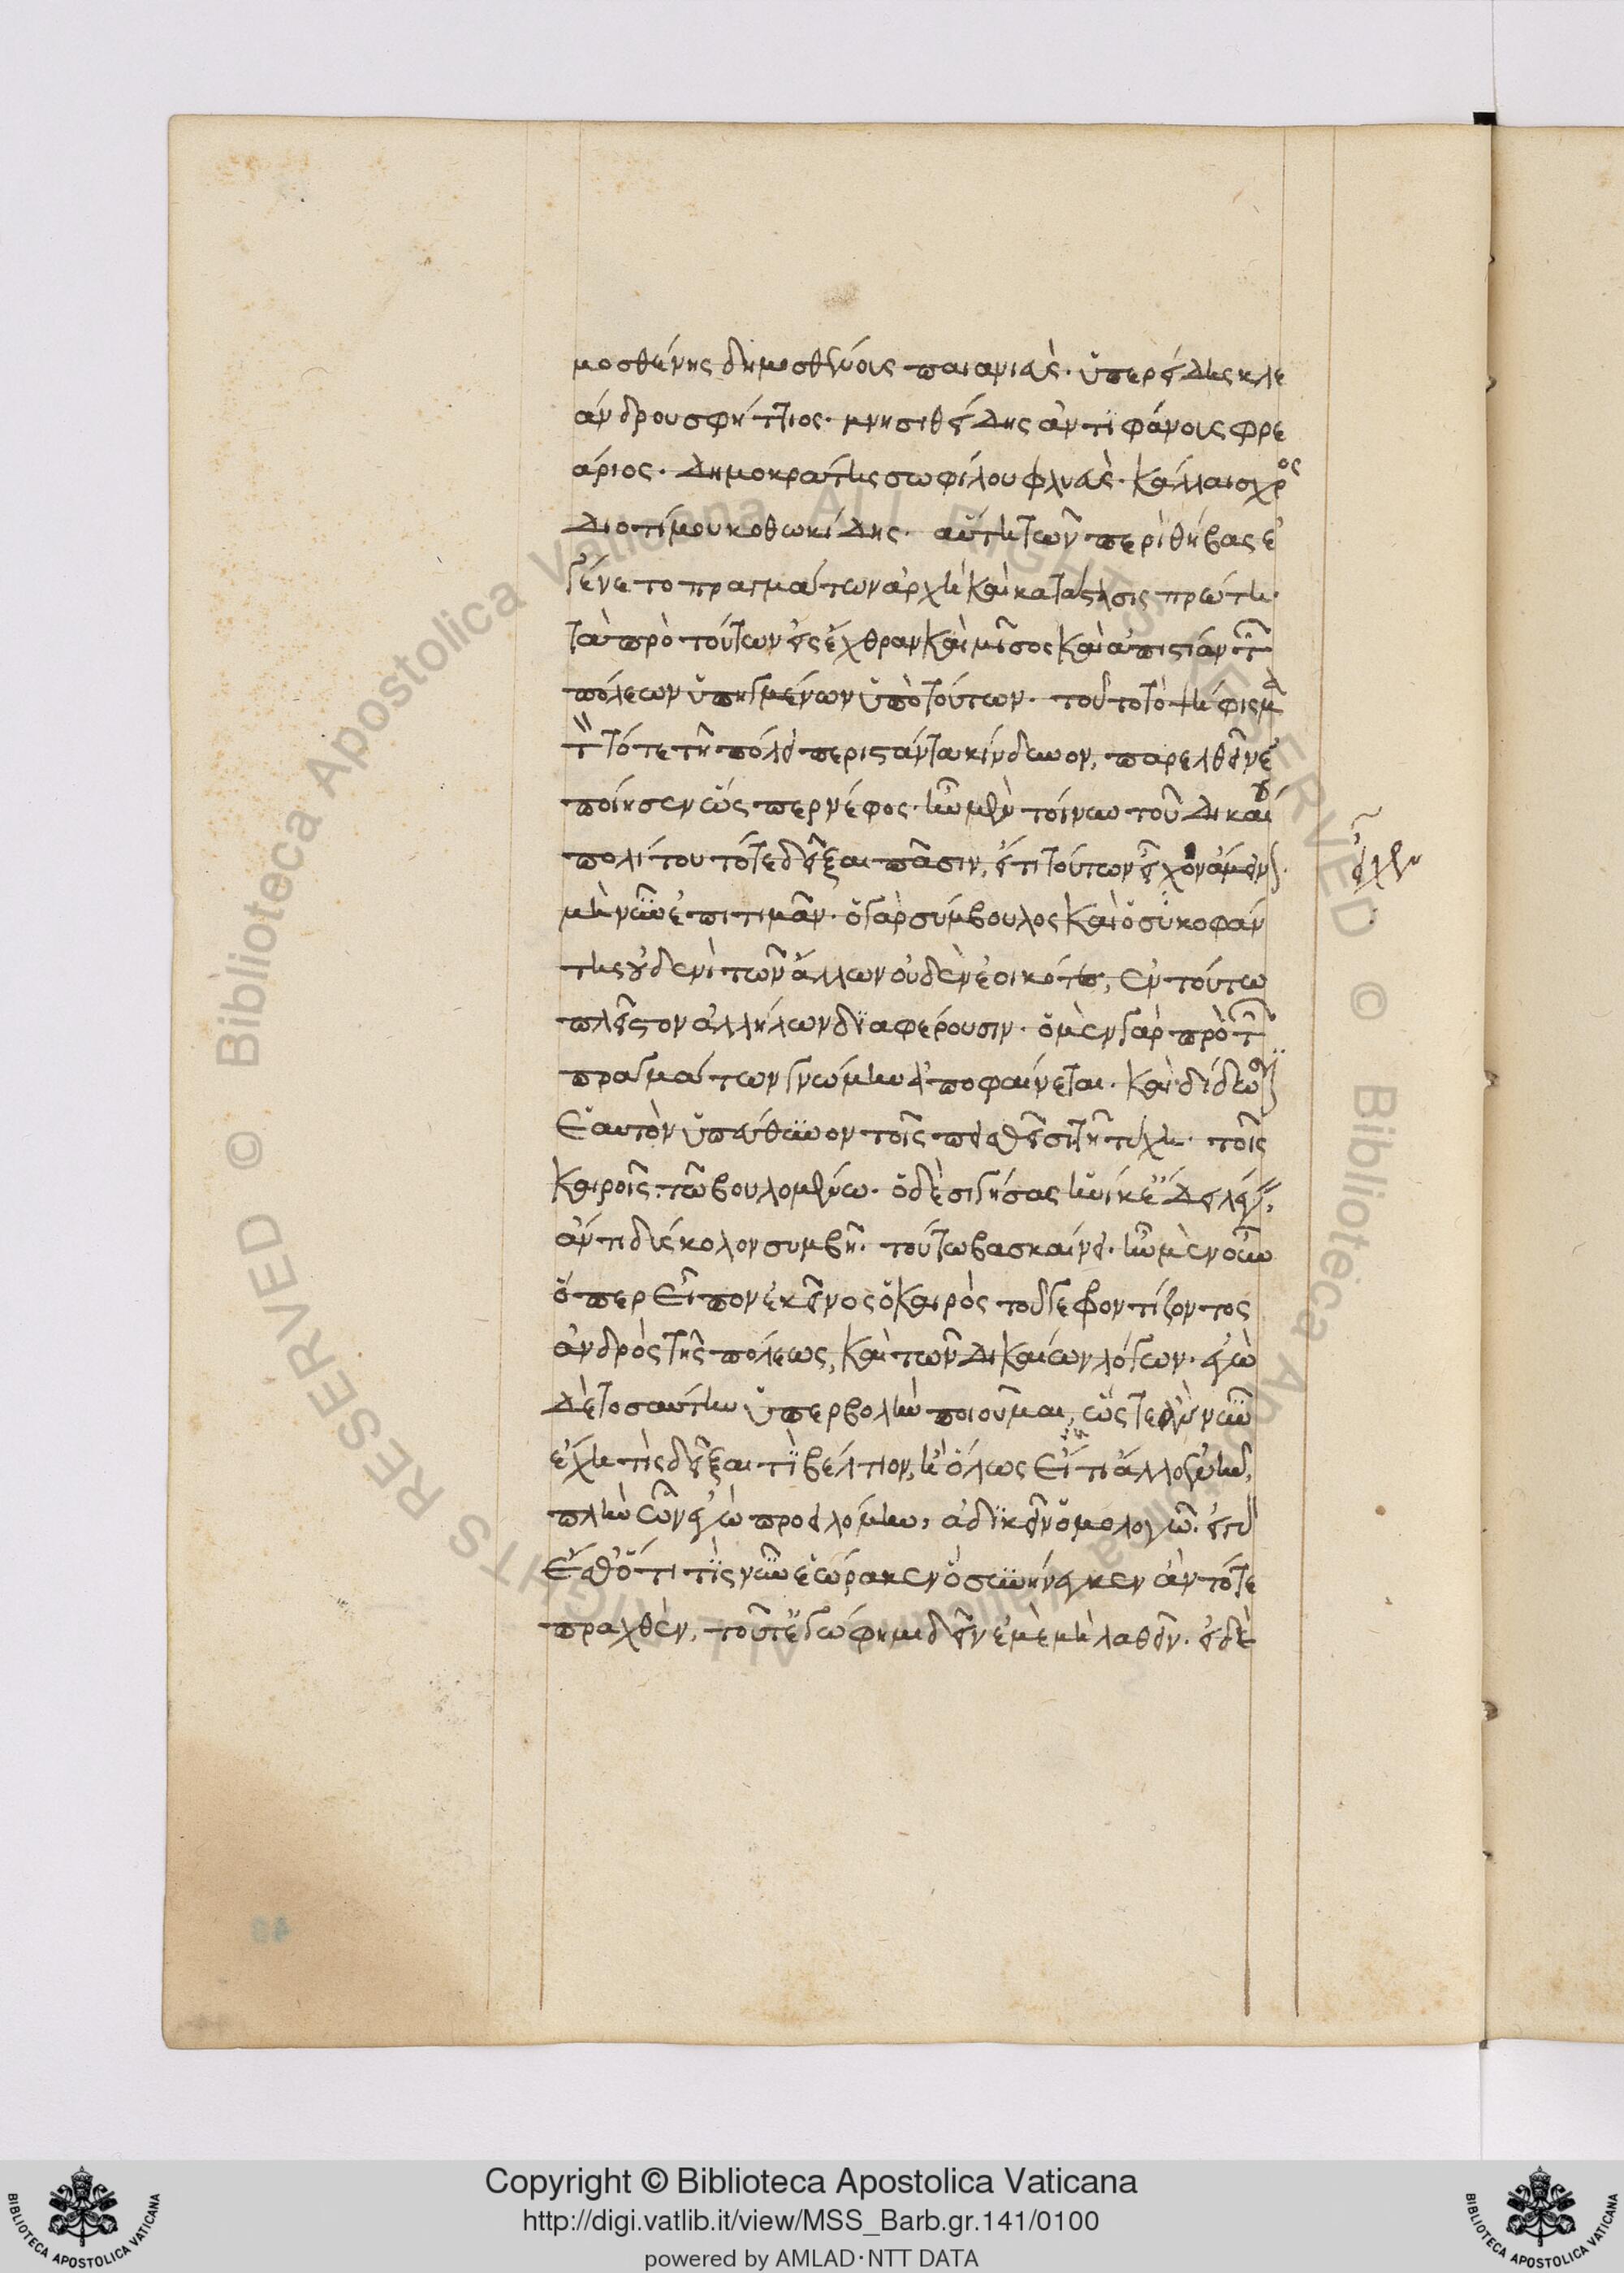 μοσθένης δημοσθένους παιανιεὺς. ὑπερείδης κλε
άνδρου σφήττιος. μνησιθείδης ἀντιφάνους φρε
άριος. Δημοκράτης σωφίλου φλυεὺς. κάλλαισχρος
Διοτίμου κοθωκίδης. αὕτη τῶν περὶ θήβας ἐ
γένετο πραγμάτων ἀρχὴ καὶ κατάστασις πρώτη.
τὰ πρὸ τούτων εἰς ἔχθραν καὶ μῖσος καὶ ἀπιστίαν τῶν
πόλεων ὑπηγμένων ὑπὸ τούτων. τοῦτο τὸ ψήφισμα
τὸν τότε τῇ πόλει περιστάντα κίνδυνον, παρελθεῖν ἐ
ποίησεν ὥσπερ νέφος. ἦν μὲν τοίνυν τοῦ δικαίου
πολίτου τότε δεῖξαι πᾶσιν, εἴ τι τούτων εἶχον ἄμεινον.
μὴ νῦν ἐπιτιμᾶν. ὁ γὰρ σύμβουλος καὶ ὁ συκοφάν
της οὐδενὶ τῶν ἄλλων οὐδὲν ἐοικότες, ἐν τούτω
πλεῖστον ἀλλήλων διαφέρουσιν. ὁ μὲν γὰρ πρὸ τῶν
πραγμάτων γνώμην ἀποφαίνεται. καὶ δίδωσιν
ἑαυτὸν ὑπεύθυνον τοῖς πεισθεῖσι τῆ τύχη. τοῖς
καιροῖς. τῶ βουλομένω. ὁ δὲ σιγήσας ἡνίκ' ἔδει λέγειν,
ἄν τι δύσκολον συμβῆ. τούτω βασκαίνει. ἦν μὲν οὖν
ὅπερ εἶπον ἐκεῖνος ὁ καιρὸς τοῦ γε φροντίζοντος
ἀνδρὸς τῆς πόλεως, καὶ τῶν δικαίων λόγων. ἐγὼ
δὲ τοσαύτην ὑπερβολὴν ποιοῦμαι, ὥστε ἂν νῦν
ἔχη τὶς δεῖξαι τὶ βέλτιον, ἢ ὅλως εἴ τι ἄλλο ἐνῆν,
πλὴν ὧν ἐγὼ προειλόμην, ἀδικεῖν ὁμολογῶ. εἰ γὰρ
ἔσθ' ὅτι τὶς νῦν ἑώρακεν ὃ συνήνεγκεν ἂν τότε
πραχθὲν, τοῦτ' ἐγώ φημι δεῖν ἐμὲ μὴ λαθεῖν. εἰ δὲ
εἶχεν